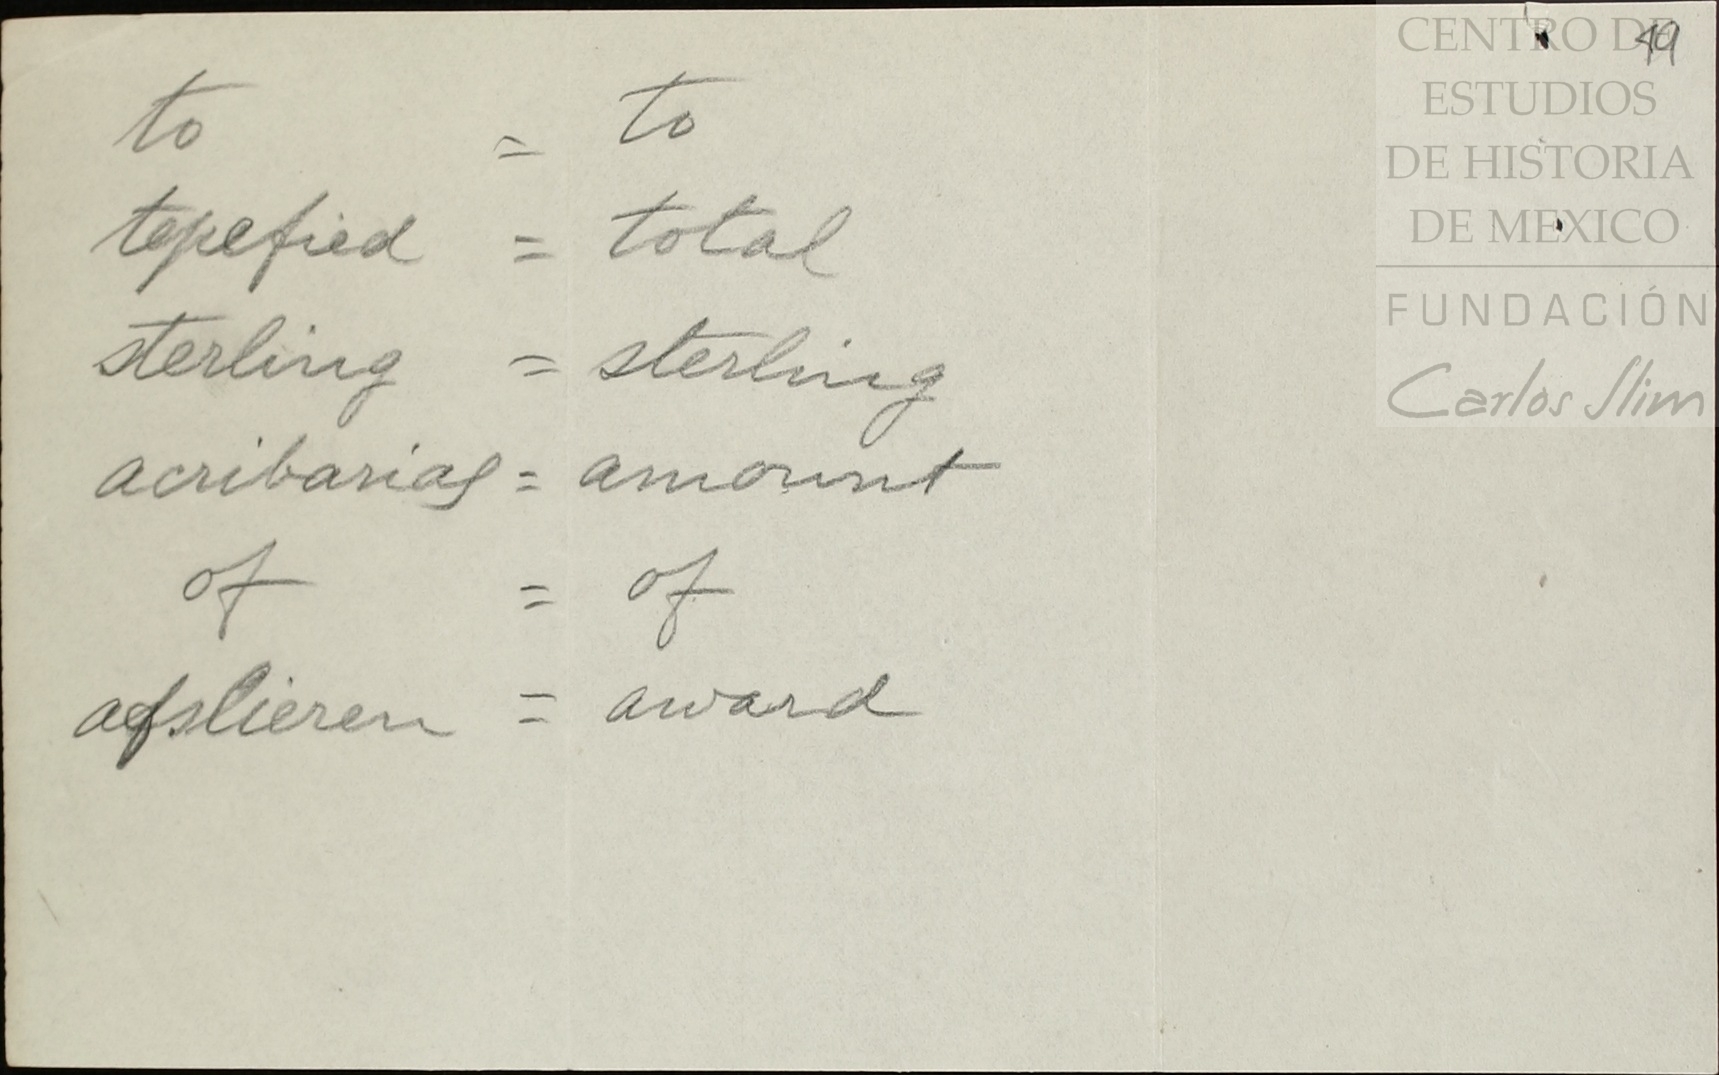 49
to = to
tepefied = total
sterling = sterling
acribarias = amount
of = of
afslieren = award
CENTRO DE
ESTUDIOS
DE HISTORIA
DE MEXICO
FUNDACIÓN
Carlos Slim